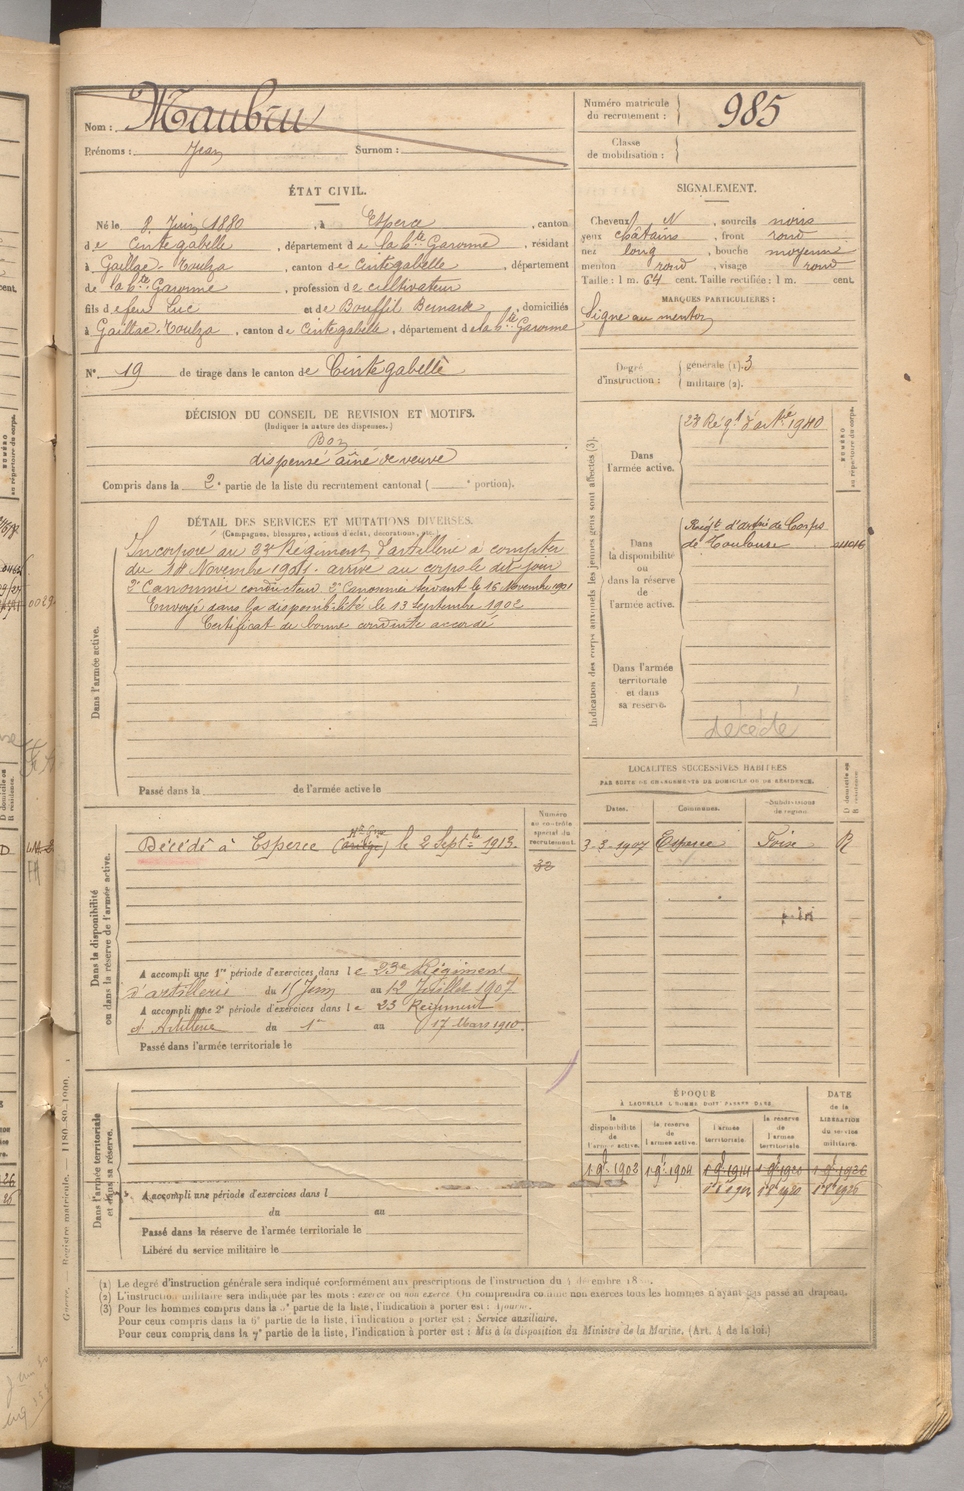 Nom : Maubru
Prénoms : Jean Surnom :
Numéro matricule
du recrutement : 985
Classe
de mobilisation :
ÉTAT CIVIL.
Né le 8 Juin 1880 , à Esperce , canton
de Cintegabelle , département de la Hte Garonne , résidant
à Gaillac-Toulza , canton de Cintegabelle , département
de la Hte Garonne , profession de cultivateur
fils de feu Luc et de Bouffil Bernarde , domiciliés
à Gaillac-Toulza , canton de Cintegabelle , département de la Hte Garonne
N° 19 de tirage dans le canton de Cintegabelle
SIGNALEMENT.
Cheveux N , sourcils noirs
yeux châtains , front rond
nez long , bouche moyenne
menton rond , visage rond
Taille : 1 m. 64 cent. Taille rectifiée : 1 m. cent.
MARQUES PARTICULIÈRES :
Signe au menton
Degré
d'instruction :
générale (1). 3
militaire (2).
DÉCISION DU CONSEIL DE REVISION ET MOTIFS.
(Indiquer la nature des dispenses.)
Bon
dispensé aîné de veuve
Compris dans la 2e partie de la liste du recrutement cantonal ( e portion).
DÉTAIL DES SERVICES ET MUTATIONS DIVERSES.
(Campagnes, blessures, actions d'éclat, décorations, etc.
Dans l'armée active.
Incorporé au 23e Régiment d'artillerie à compter
du 14 Novembre 1901. arrivé au corps le dit jour
2e Canonnier conducteur. 2e Canonnier servant le 16 Novembre 1901
Envoyé dans la disponibilité le 13 Septembre 1902
Certificat de bonne conduite accordé
Passé dans la de l'armée active le
Indication des corps auxquels les jeunes gens sont affectés (3).
NUMÉRO
au répertoire du corps.
Dans
l'armée active.
23 Régt d'artie 1940
Dans
la disponibilité
ou
dans la réserve
de
l'armée active.
Régt d'artie de Corps
de Toulouse
Dans l'armée
territoriale
et dans
sa réserve.
décédé
LOCALITÉS SUCCESSIVES HABITÉES
PAR SUITE DE CHANGEMENTS DE DOMICILE OU DE RÉSIDENCE.
D domicile ou
R résidence.
Dates. Communes. Subdivisions
de région.
3-3-1907 Esperce Foix R
Dans la disponibilité
ou dans la réserve de l'armée active.
Numéro
au contrôle
spécial du
recrutement.
32
Hte Gne
Décédé à Esperce (Ariège) le 2 Septbre 1913.
A accompli une 1re période d'exercices dans le 23e Régiment
d'artillerie du 15 Juin au 12 Juillet 1907
A accompli une 2e période d'exercices dans le 23 Régiment
d'Artillerie du 1er au 17 Mars 1910.
Passé dans l'armée territoriale le
Dans l'armée territoriale
et dans sa réserve.
A accompli une période d'exercices dans l
du au
Passé dans la réserve de l'armée territoriale le
Libéré du service militaire le
ÉPOQUE
À LAQUELLE L'HOMME DOIT PASSER DANS
DATE
de la
LIBÉRATION
du service
militaire.
la
disponibilité
de
l'armée active.
la réserve
de
l'armée active.
l'armée
territoriale.
la réserve
de
l'armée
territoriale.
1 9e 1902 1 9e 1904 1 9e 1914 1 9e 1920 1 9e 1926
Guerre. — Registre matricule. — 1180-89-1900.
(1) Le degré d'instruction générale sera indiqué conformément aux prescriptions de l'instruction du 4 décembre 18
(2) L'instruction militaire sera indiquée par les mots : exercé ou non exercé On comprendra comme non exercés tous les hommes n'ayant pas passé au drapeau.
(3) Pour les hommes compris dans la 5e partie de la liste, l'indication à porter est : Ajourné.
Pour ceux compris dans la 6e partie de la liste, l'indication à porter est : Service auxiliaire.
Pour ceux compris dans la 7e partie de la liste, l'indication à porter est : Mis à la disposition du Ministre de la Marine. (Art. 4 de la loi.)